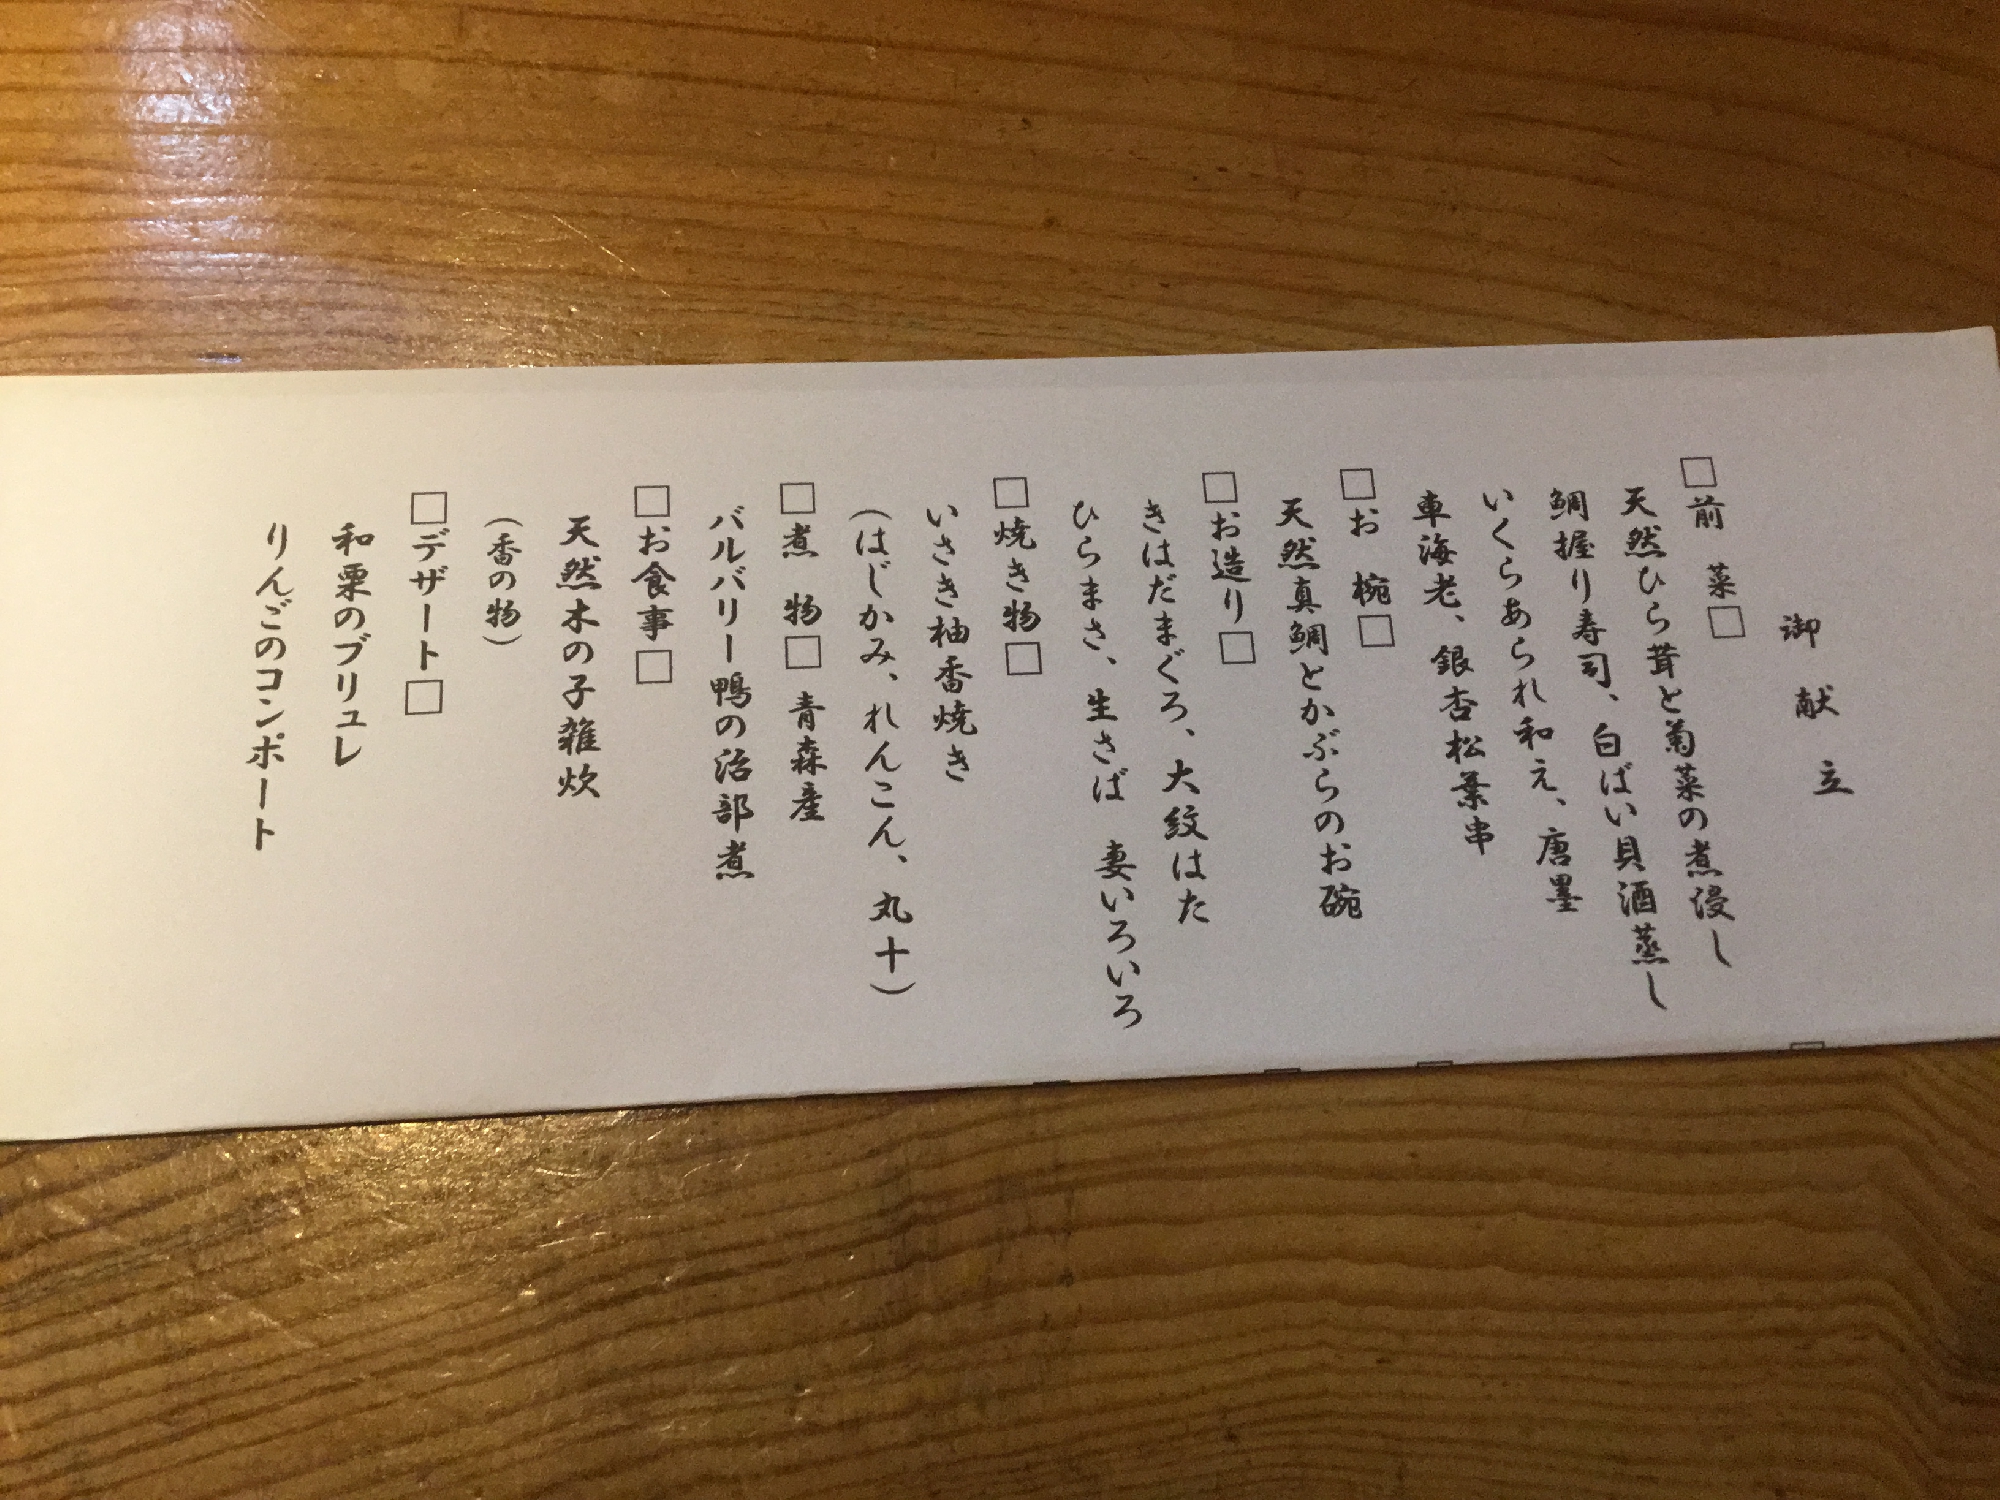 御献立
□前　菜□
天然ひら茸と菊菜の煮浸し
鯛握り寿司、白ばい貝酒蒸し
いくらあられ和え、唐墨
車海老、銀杏松葉串
□お　椀□
天然真鯛とかぶらのお碗
□お造り□
きはだまぐろ、大紋はた
ひらまさ、生さば　妻いろいろ
□焼き物□
いさき柚香焼き
（はじかみ、れんこん、丸十）
□煮　物□　青森産
バルバリー鴨の治部煮
□お食事□
天然木の子雑炊
（香の物）
□デザート□
和栗のブリュレ
りんごのコンポート